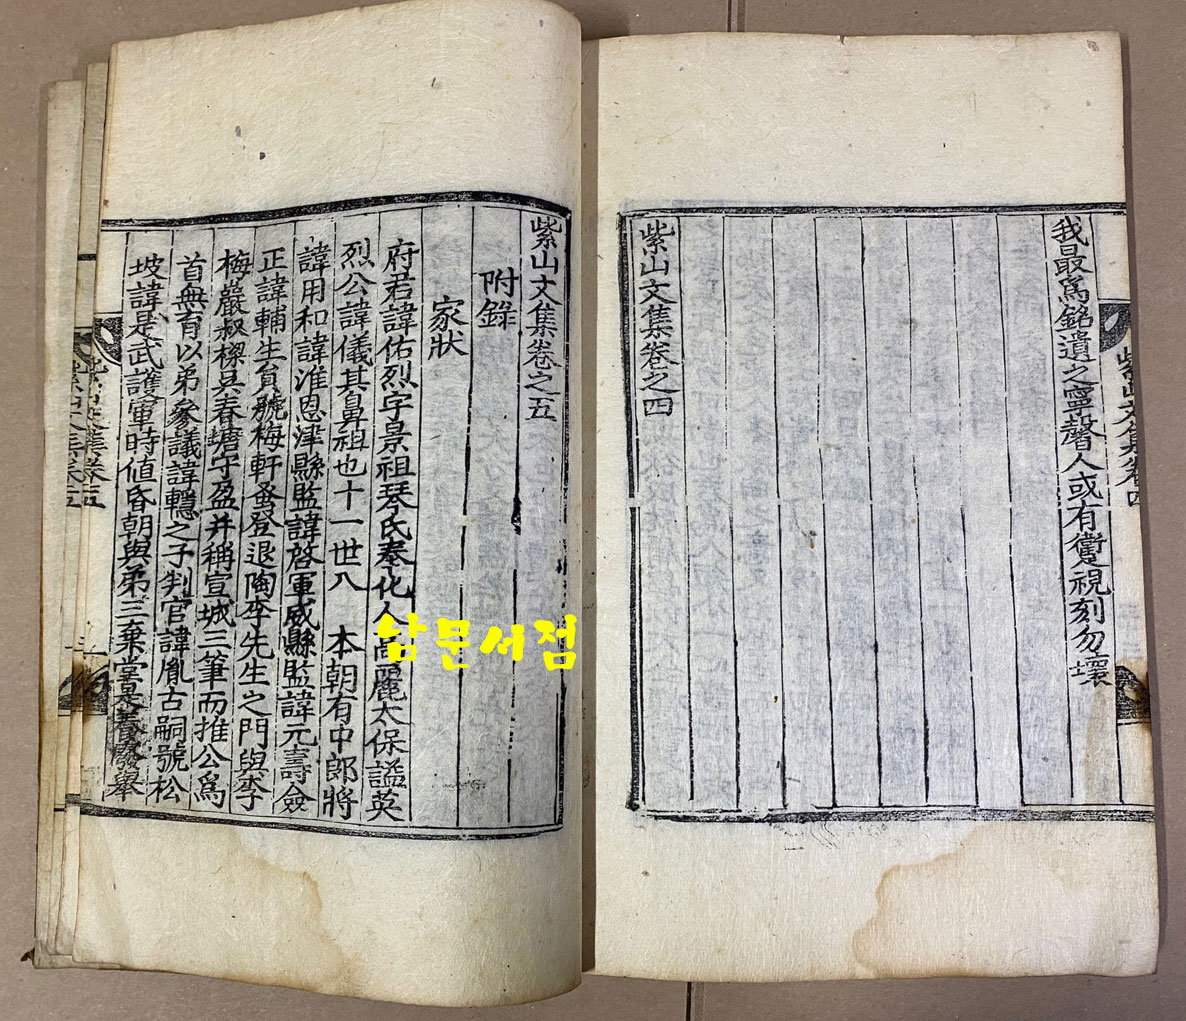 我最爲銘遺之寧馨人或有躗視刻勿壞
紫山文集卷之四
紫山文集卷四
紫山文集卷之五
附錄
家狀
府君諱佑烈字景祖琴氏奉化人高麗太保謚英
烈公諱儀其鼻祖也十一世入 本朝有中郎將
諱用和諱淮恩津縣監諱啓軍威縣監諱元壽僉
正諱輔生貟號梅軒蚤登退陶李先生之門與李
梅巖叔樑吳春塘守盈并稱宣城三筆而推公爲
首無育以弟參議諱轀之子判官諱胤古嗣號松
坡諱是武護軍時値昏朝與弟三棄堂是養廢舉
남문서점